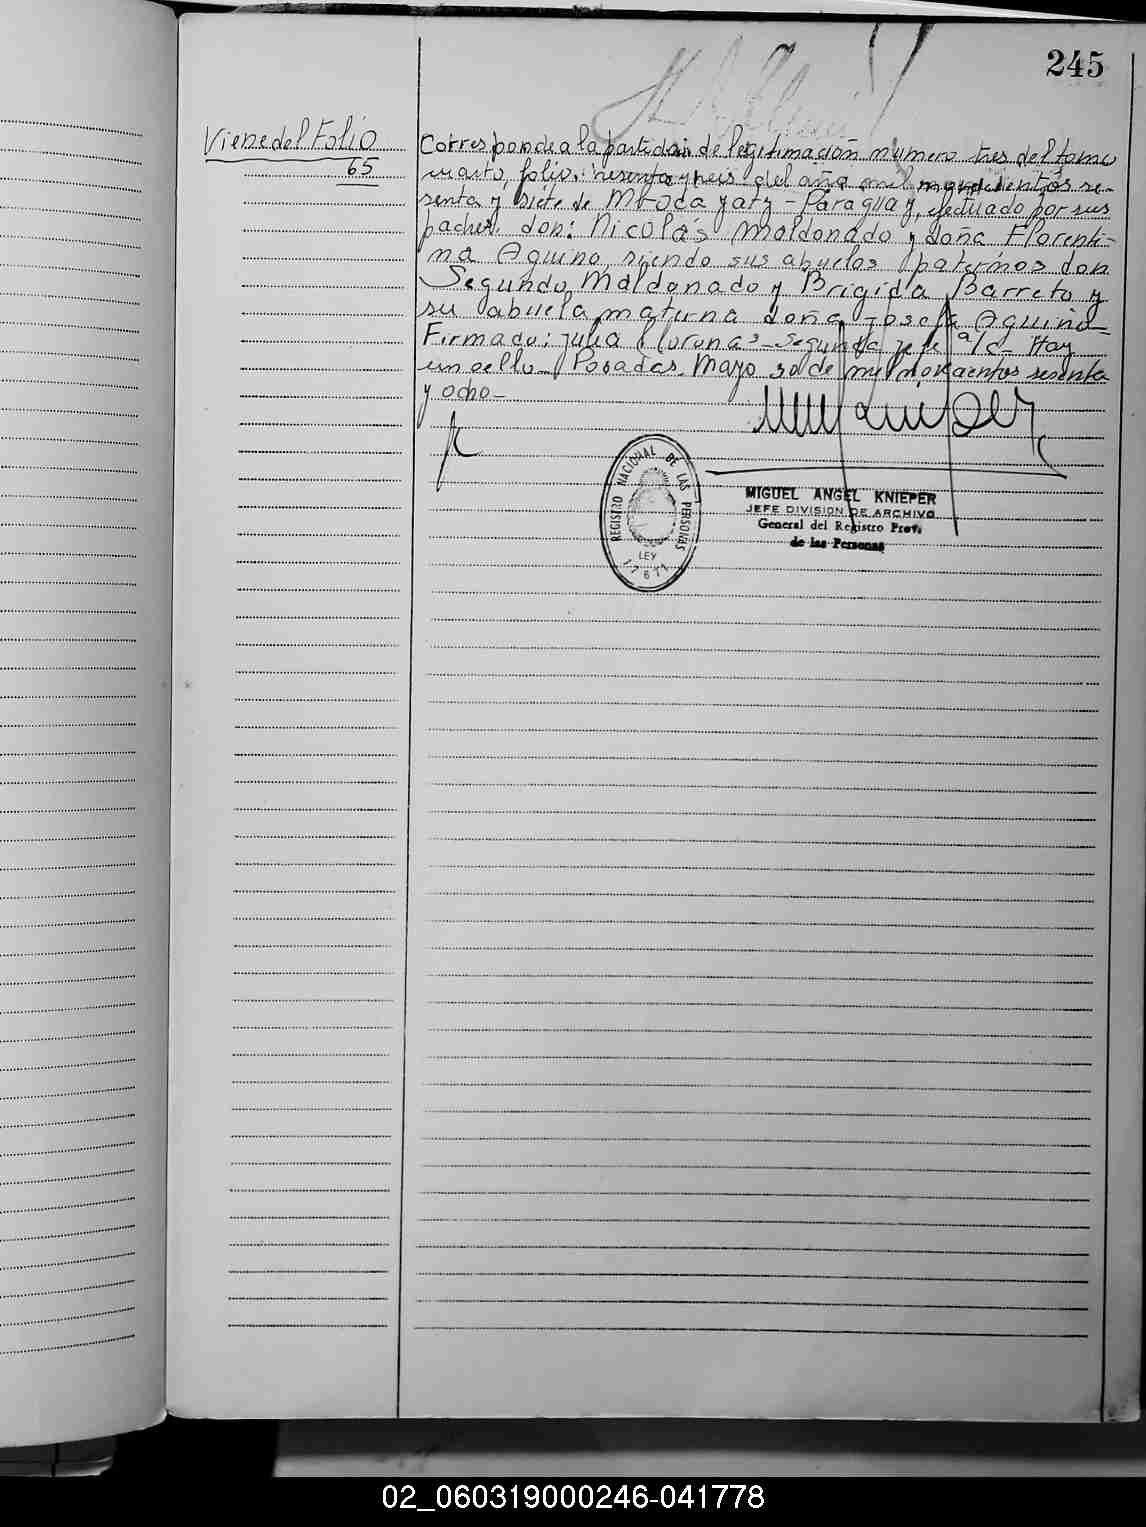 245
Viene del Folio
65
Corresponde a la partida de legitimación número tres del tomo
cuarto, folio sesenta y seis del año mil novecientos se-
senta y siete de Mbocayaty - Paraguay, efectuado por sus
padres don: Nicolás Maldonado y doña Florenti-
na Aquino, siendo sus abuelos paternos don
Segundo Maldonado y Brigida Barreto y
su abuela materna doña Josefa Aquino
Firmado: Julia Segunda Jefe a/c - Hay
un sello - Posadas, Mayo 30 de mil novecientos sesenta
y ocho -
REGISTRO NACIONAL DE LAS PERSONAS
LEY
17671
MIGUEL ANGEL KNIEPER
JEFE DIVISION DE ARCHIVO
General del Registro Prov.
de las Personas
02_060319000246-041778